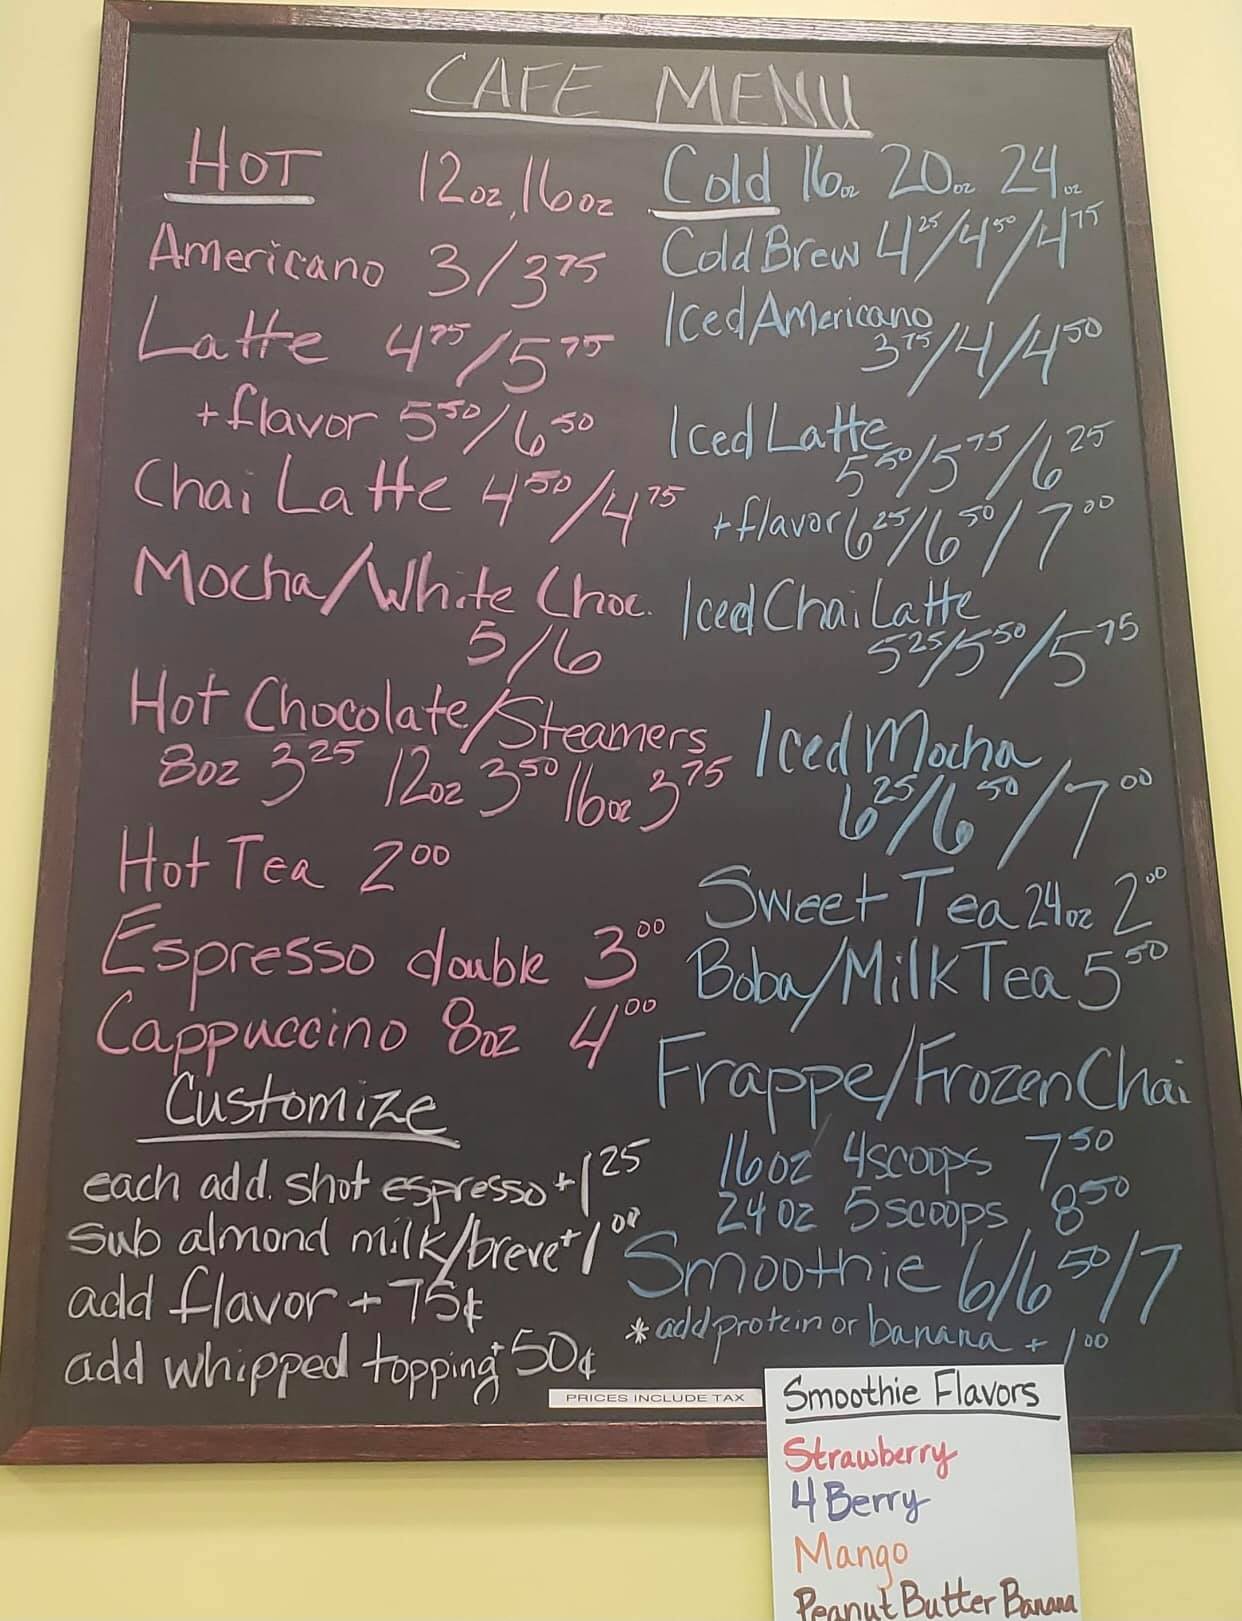 CAFE MENU
HOT 12oz, 16oz
Americano 3/3 75
Latte 4 75/5 75
+ flavor 5 50/6 50
Chai Latte 4 50/4 75
Mocha/White Choc.
5/6
Hot Chocolate/Steamers
8oz 3 25 12oz 3 50 16oz 3 75
Hot Tea 2 00
Espresso double 3 00
Cappuccino 8oz 4 00
Customize
each add. shot espresso +1 25
sub almond milk/breve +1 00
add flavor + 75¢
add whipped topping + 50¢
Cold 16oz 20oz 24oz
Cold Brew 4 25/4 50/4 75
Iced Americano
3 75/4/4 50
Iced Latte
5 50/5 75/6 25
+ flavor 6 25/6 50/7 00
Iced Chai Latte
5 25/5 50/5 75
Iced Mocha
6 25/6 50/7 00
Sweet Tea 24oz 2 00
Boba/Milk Tea 5 50
Frappe/Frozen Chai
16oz 4 scoops 7 50
24oz 5 scoops 8 50
Smoothie 6/6 50/7
*add protein or banana + 1 00
PRICES INCLUDE TAX
Smoothie Flavors
Strawberry
4 Berry
Mango
Peanut Butter Banana